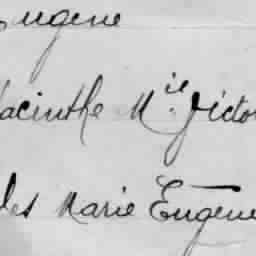 Eugene
Hyacinthe Mie Victor
les Marie Eugene